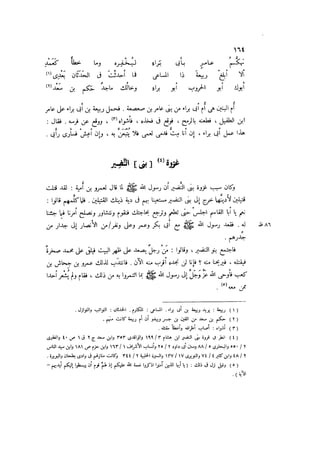 ١٦٤
تَهَكَّمَ عامرٌ بأبى بَراءٍ لِيُخْفِرَه وما خطأٌ كَعَمْدِ
ألا أبلغْ ربيعةَ ذا المساعى فما أحدثْتَ فى الحَدَثان بَعْدِى (١)
أبوك أبو الحروب أبو براءٍ وخالُك ماجدٌ حَكَم بن سَعْدِ (٢)
أم البنين هى أم أبى براء من بنى عامر بن صعصعة. فحمل ربيعة بن أبى براء على عامر
ابن الطفيل، فطعنه بالرمح، فوقع فى فخذه، فأشواه (٣)، ووقع عن فرسه. فقال:
هذا عمل أبى براء، إن أنا متُّ فدَمى لعمى فلا يُتْبَعَنَّ به، وإن أعِشْ فسأرى رأيى.
غزوة (٤) [بنى] النَّضِير
وكان سبب غزوة بنى النَّضير أن رسول الله ﷺ لما قال لعمرو بن أمية: لقد قتلت
قتيلين لأدِيَنَّهما خرج إلى بنى النَّضير مستعينا بهم فى دية ذينك القتيلين. فلما كلَّمهم قالوا:
نعم يا أبا القاسم اجلسْ حتى تطعم وترجع بحاجتك فنقوم ونتشاور ونصلح أمرنا فيما جئتنا
له. فقعد رسول الله ﷺ مع أبى بكر وعمر وعلى ونفر من الأنصار إلى جدار من ٨٦ ظ
جُدرهم.
فاجتمع بنو النضير، وقالوا: مَنْ رجلٌ يصعد على ظهر البيت فيلقى على محمد صخرةً
فيقتله، فيريحنا منه؟ فإنا لن نجده أقرب منه الآن. فانتدَب لذلك عمرو بن جحاش بن
كعب فأوحى الله عزَّ وجَلَّ إلى رسول الله ﷺ بما ائتمروا به من ذلك، فقام ولم يُشْعِر أحدا
ممن معه (٥).
(١) ربيعة: يريد ربيعة بن أبى براء. المساعى: المكارم. الحدثان: النوائب والنوازل.
(٢) حكم بن سعد من القين بن جسر ويبدو أن أم ربيعة كانت منهم.
(٣) أشواه: أصاب أطرافه وأخطأ مقتله.
(٤) انظر فى غزوة بنى النضير ابن هشام ٣ / ١٩٩ والواقدى ٣٥٣ وابن سعد ج ٢ ق ١ ص ٤٠ والطبرى
٢ / ٥٥٠ والبخارى ٥ / ٨٨ وسنن أبى داود ٢ / ٢٥ وأنساب الأشراف ١ / ١٦٣ وابن حزم ص ١٨١ وابن سيد الناس
٢ / ٤٨ وابن كثير ٤ / ٧٤ والنويرى ١٧ / ١٣٧ والسيرة الحلبية ٢ / ٣٤٤ وكانت منازلهم فى وادى بطحان والبويرة.
(٥) وقيل نزل فى ذلك: (يا أيها الذين آمنوا اذكروا نعمة الله عليكم إذ همّ قوم أن يبسطوا إليكم أيديهم –
الآية).